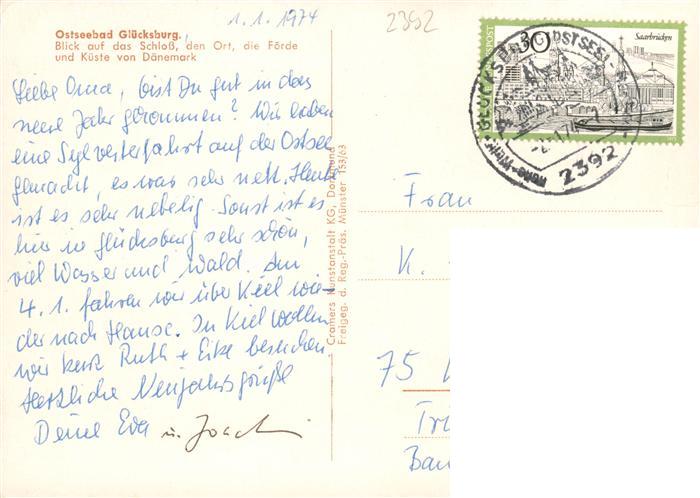 1.1.1974
2392
Ostseebad Glücksburg,
Blick auf das Schloß, den Ort, die Förde
und Küste von Dänemark
Liebe Oma, bist Du gut in das
neue Jahr gekommen? Wir haben
eine Sylvesterfahrt auf der Ostsee
gemacht, es war sehr nett. Heute
ist es sehr nebelig. Sonst ist es
hier in Glücksburg sehr schön,
viel Wasser und Wald. Am
4.1. fahren wir über Kiel wie-
der nach Hause. In Kiel wollen
wir kurz Ruth + Eike besuchen.
Herzliche Neujahrsgrüße
Deine Eva u. Joachi
Cramers Kunstanstalt KG, Dortmund
Freigeg. d. Reg.-Präs. Münster 153/63
30
Saarbrücken
2392
Frau
K.
75